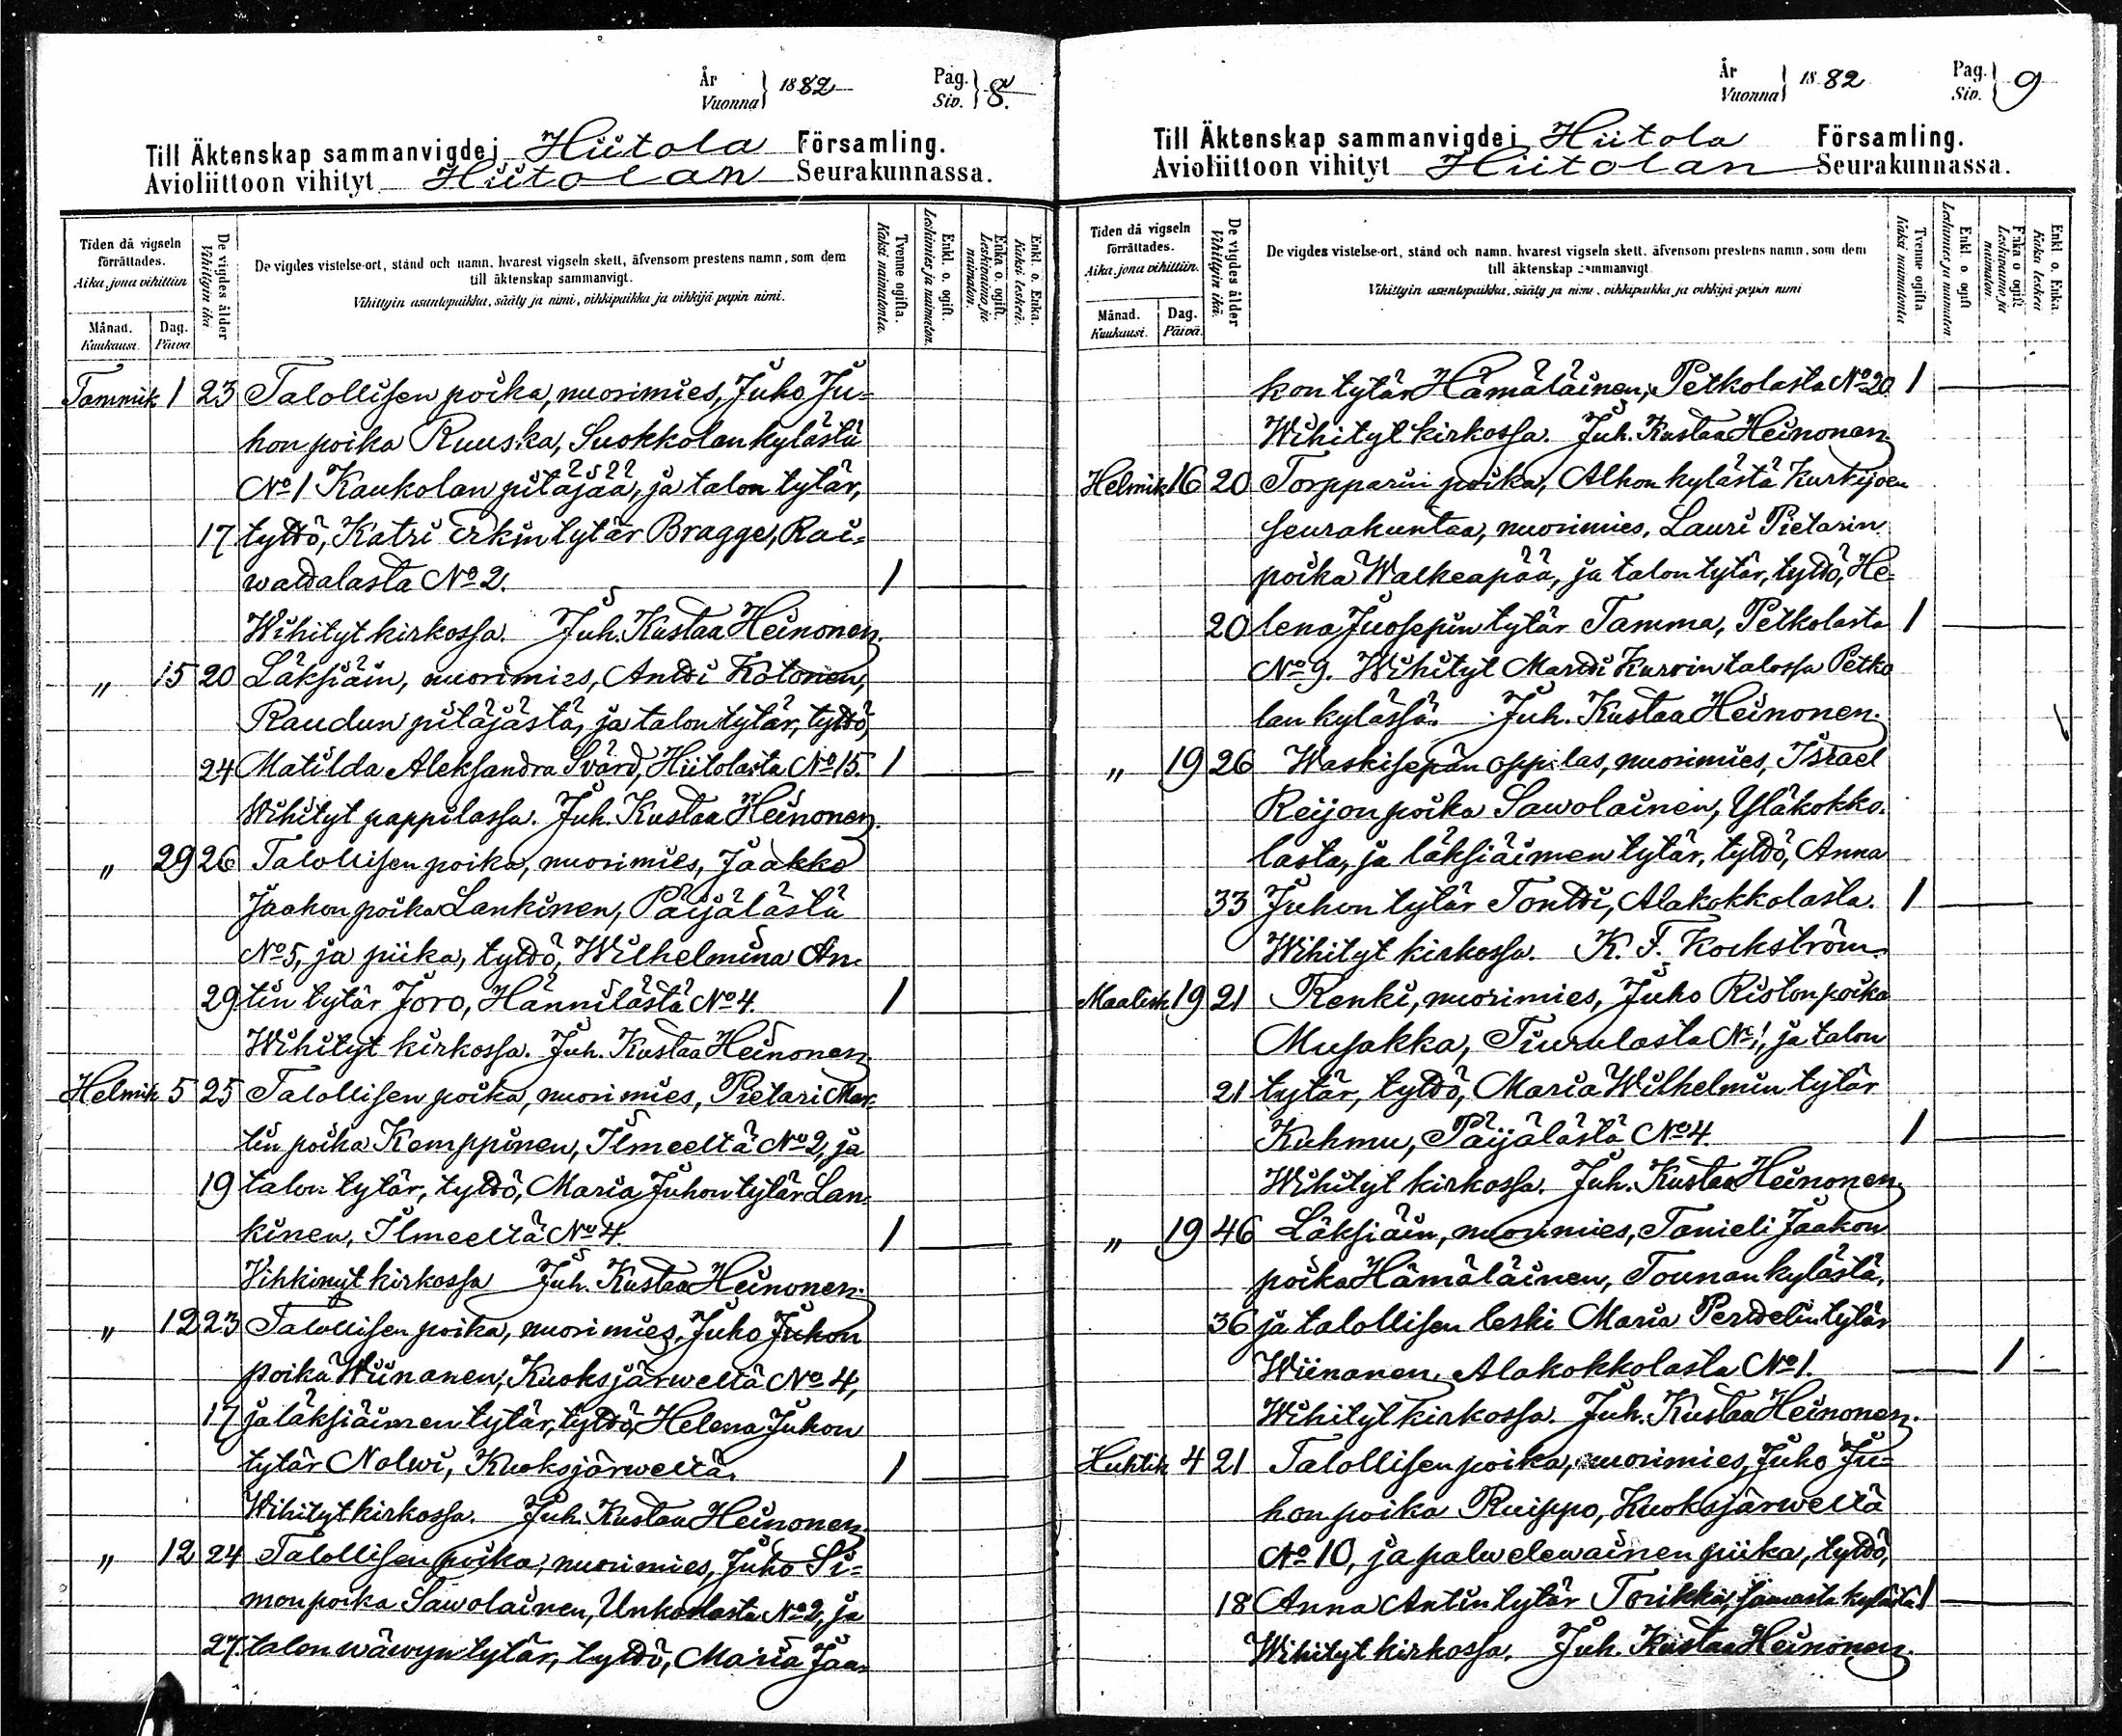 År Vuonna } 1882 Pag. Siv. } 8.
Till Äktenskap sammanvigde i Hiitola Församling.
Avioliittoon vihityt Hiitolan Seurakunnassa.
Tiden då vigseln förrättades.
Aika, jona vihittiin
Månad. Kuukausi.
Dag. Päivä
De vigdes ålder
Vihittyin ikä.
De vigdes vistelse-ort, stånd och namn, hvarest vigseln skett, äfvensom prestens namn, som dem
till äktenskap sammanvigt.
Vihittyin asuntopaikka, sääty ja nimi, vihkipaikka ja vihkijä papin nimi.
Tvenne ogifta.
Kaksi naimatonta.
Enkl. o. ogift.
Leskimies ja naimaton.
Enka o. ogift.
Leskivaimo ja naimaton.
Enkl. o. Enka.
Kaksi leskeä.
Tammik 1 23 Talollisen poika, nuorimies, Juho Ju=
hon poika Ruuska, Suokkolan kylästä
No 1 Kaukolan pitäjää, ja talon tytär,
17 tyttö, Katri Erkin tytär Bragge, Rai=
wattalasta No 2. 1
Wihityt kirkossa. Juh. Kustaa Heinonen.
" 15 20 Läksiäin, nuorimies, Antti Kotonen,
Raudun pitäjästä, ja talon tytär, tyttö
24 Matilda Aleksandra Svärd, Hiitolasta No 15. 1
Wihityt pappilassa. Juh. Kustaa Heinonen.
" 29 26 Talollisen poika, nuorimies, Jaakko
Jaakon poika Lankinen, Päijälästä
No 5, ja piika, tyttö, Wilhelmina An
29 tin tytär Joro, Hännilästä No 4. 1
Wihityt kirkossa. Juh. Kustaa Heinonen.
Helmik 5 25 Talollisen poika, nuorimies, Pietari Mar
tin poika Kemppinen, Ilmeeltä No 2, ja
19 talon tytär, tyttö, Maria Juhon tytär Lan
kinen, Ilmeeltä No 4. 1
Vihkinyt kirkossa Juh. Kustaa Heinonen.
" 12 23 Talollisen poika, nuorimies, Juho Juhon
poika Wiinanen, Kuoksjärweltä No 4,
17 ja läksiäimen tytär, tyttö, Helena Juhon
tytär Nalwi, Kuoksjärweltä. 1
Wihityt kirkossa. Juh. Kustaa Heinonen
" 12 24 Talollisen poika, nuorimies, Juho Si=
mon poika Sawolainen, Unkolasta No 2, ja
27. talon wäwyn tytär, tyttö, Maria Jaa
År Vuonna } 1882 Pag. Siv. } 9
Till Äktenskap sammanvigde i Hiitola Församling.
Avioliittoon vihityt Hiitolan Seurakunnassa.
Tiden då vigseln förrättades.
Aika, jona vihittiin.
Månad. Kuukausi.
Dag. Päivä.
De vigdes ålder
Vihittyin ikä.
De vigdes vistelse-ort, stånd och namn, hvarest vigseln skett, äfvensom prestens namn, som dem
till äktenskap sammanvigt.
Vihittyin asuntopaikka, sääty ja nimi, vihkipaikka ja vihkijä papin nimi
Tvenne ogifta
Kaksi naimatonta
Enkl. o. ogift
Leskimies ja naimaton
Enka o ogift
Leskivaimo ja naimaton.
Enkl. o. Enka.
Kaksi leskeä
kon tytär Hämäläinen, Petkolasta No 20 1
Wihityt kirkossa. Juh. Kustaa Heinonen.
Helmik 16 20 Torpparin poika, Alhon kylästä Kurkijoen
seurakuntaa, nuorimies, Lauri Pietarin
poika Walkeapää, ja talon tytär, tyttö, He=
20 lena Juosepin tytär Tamma, Petkolasta 1
No 9. Wihityt Martti Kurvin talossa Petko
lan kylässä. Juh. Kustaa Heinonen.
" 19 26 Waskisepän oppilas, nuorimies, Israel
Reijon poika Sawolainen, Yläkokko
lasta, ja läksiäimen tytär, tyttö, Anna
33 Juhon tytär Tontti, Alakokkolasta. 1
Wihityt kirkossa. K. F. Kockström.
Maalisk 19 21 Renki, nuorimies, Juho Riston poika
Musakka, Tiurulasta No 1, ja talon
21 tytär, tyttö, Maria Wilhelmin tytär
Kuhmu, Päijälästä No 4. 1
Wihityt kirkossa. Juh. Kustaa Heinonen.
" 19 46 Läksiäin, nuorimies, Tanieli Jaakon
poika Hämäläinen, Tounan kylästä,
36 ja talollisen leski Maria Perttelin tytär
Wiinanen, Alakokkolasta No 1. 1
Wihityt kirkossa. Juh. Kustaa Heinonen.
Huhtik 4 21 Talollisen poika, nuorimies, Juho Ju=
hon poika Ruippo, Kuoksjärweltä
No 10, ja palwelewainen piika, tyttö,
18 Anna Antin tytär Torikka, samasta kylästä 1
Wihityt kirkossa. Juh. Kustaa Heinonen.